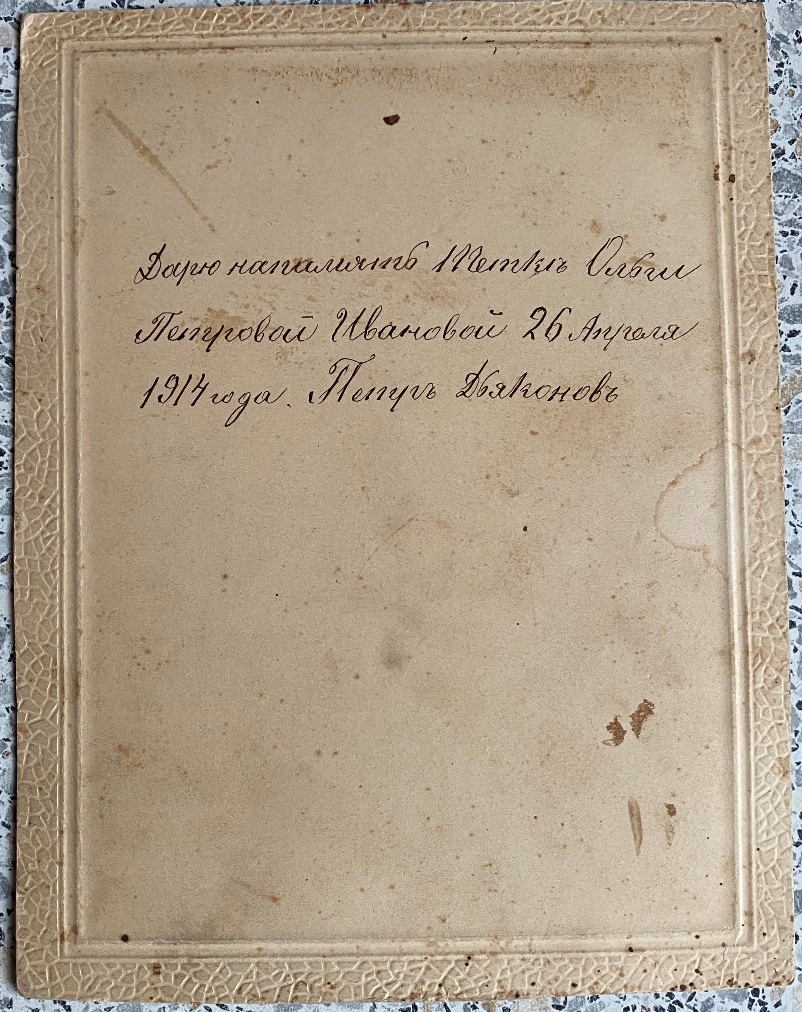 Дарю на память Теткѣ Ольги
Петровой Ивановой 26 Апреля
1914 года. Петръ Дьяконовъ